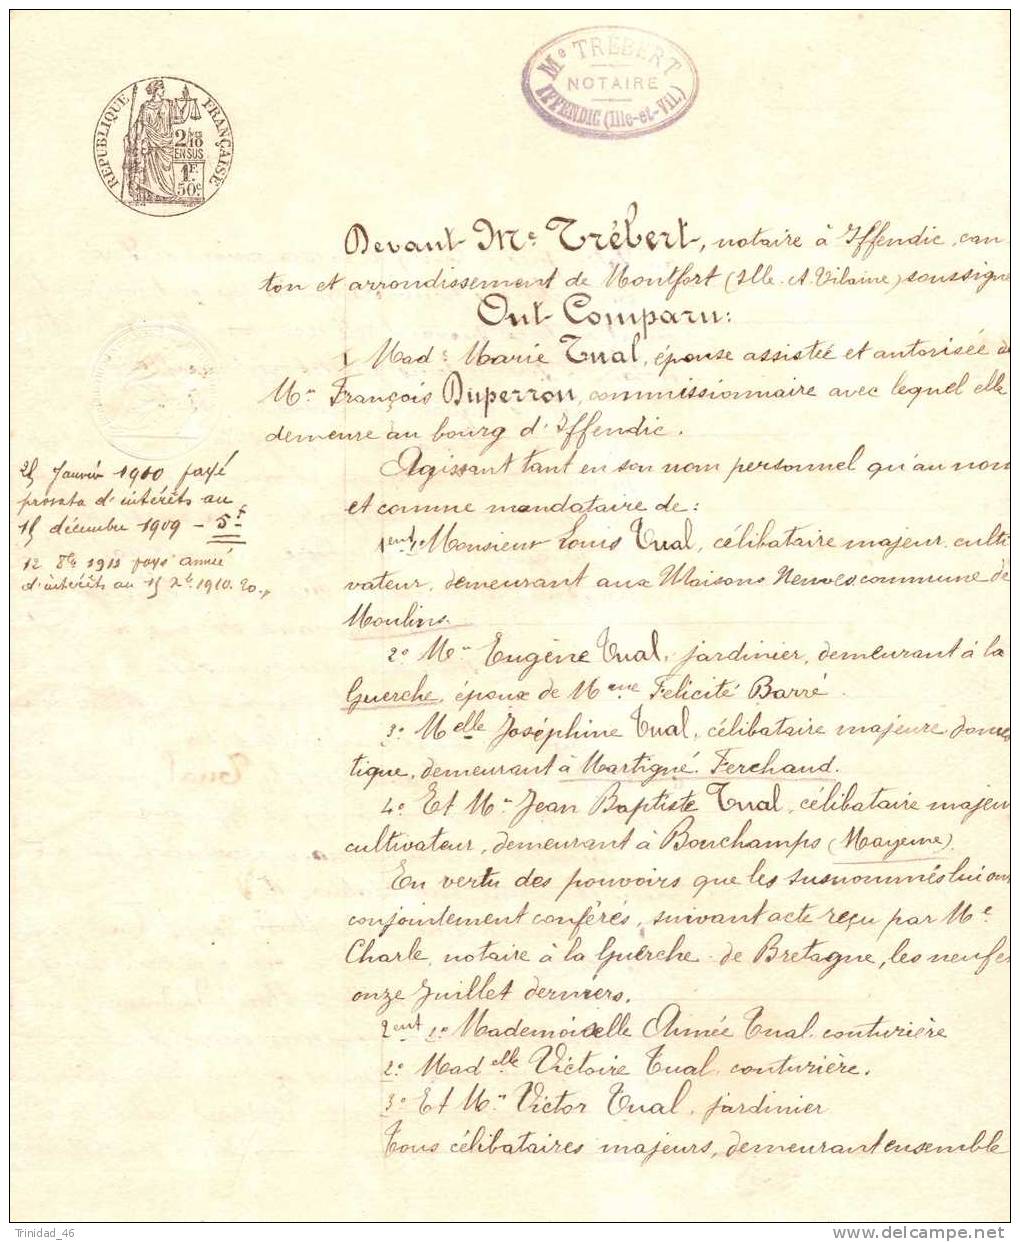 Me TRÉBERT
NOTAIRE
IFFENDIC (Ille-et-Vil.)
RÉPUBLIQUE FRANÇAISE
2/10
EN SUS
1F.
50c.
Devant Me Trébert, notaire à Iffendic, can
ton et arrondissement de Montfort (Ille-et-Vilaine) soussigné
Ont Comparu:
1 Made Marie Tual, épouse assistée et autorisée de
Mr François Duperron, commissionnaire avec lequel elle
demeure au bourg d'Iffendic.
Agissant tant en son nom personnel qu'au nom
et comme mandataire de:
1ent 1o Monsieur Louis Tual, célibataire majeur, culti
vateur, demeurant aux Maisons Neuves commune de
Moulins.
2o Mr Eugène Tual, jardinier, demeurant à la
Guerche, époux de Mme Félicité Barré.
3o Melle Joséphine Tual, célibataire majeure domes
tique, demeurant à Martigné-Ferchaud.
4o Et Mr Jean Baptiste Tual, célibataire majeur
cultivateur, demeurant à Bouchamps (Mayenne).
En vertu des pouvoirs que les susnommés lui ont
conjointement conférés, suivant acte reçu par Me
Charle, notaire à la Guerche-de-Bretagne, les neuf et
onze Juillet derniers.
2ent 1o Mademoiselle Aimée Tual, couturière
2o Madelle Victoire Tual, couturière.
3o Et Mr Victor Tual, jardinier
Tous célibataires majeurs, demeurant ensemble
25 Janvier 1910 payé
prorata d'intérêts au
15 décembre 1909 - 5f
12 8bre 1912 payé année
d'intérêts au 15 Xbre 1910. 20 "
Trinidad_46
delcampe.net